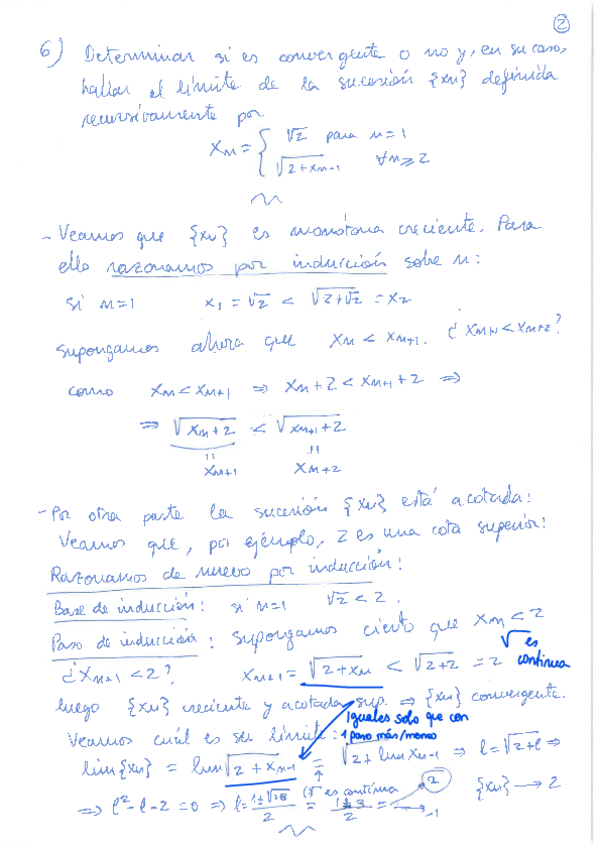 ②
6) Determinar si es convergente o no y, en su caso,
hallar el límite de la sucesión {xn} definida
recursivamente por
xn = { √2 para n=1
√(2+xn-1) ∀n≥2
- Veamos que {xn} es monótona creciente. Para
ello razonamos por inducción sobre n:
si n=1 x1 = √2 < √(2+√2) = x2
supongamos ahora que xn < xn+1. ¿xn+1 < xn+2?
como xn < xn+1 ⇒ xn+2 < xn+1 + 2 ⇒
⇒ √(xn+2) < √(xn+1+2)
= =
xn+1 xn+2
- Por otra parte la sucesión {xn} está acotada:
Veamos que, por ejemplo, 2 es una cota superior:
Razonamos de nuevo por inducción:
Base de inducción: si n=1 √2 < 2.
Paso de inducción: supongamos cierto que xn < 2
¿xn+1 < 2? xn+1 = √(2+xn) < √(2+2) = 2
√ es
continua
luego {xn} creciente y acotada sup. ⇒ {xn} convergente.
Iguales solo que con
1 paso más/menos
Veamos cuál es su límite:
lim{xn} = lim √(2+xn-1) = √(2+lim xn-1) ⇒ l=√(2+l) ⇒
(√ es continua
⇒ l²-l-2=0 ⇒ l= = (1±3)/2 = 2 -1 {xn} → 2